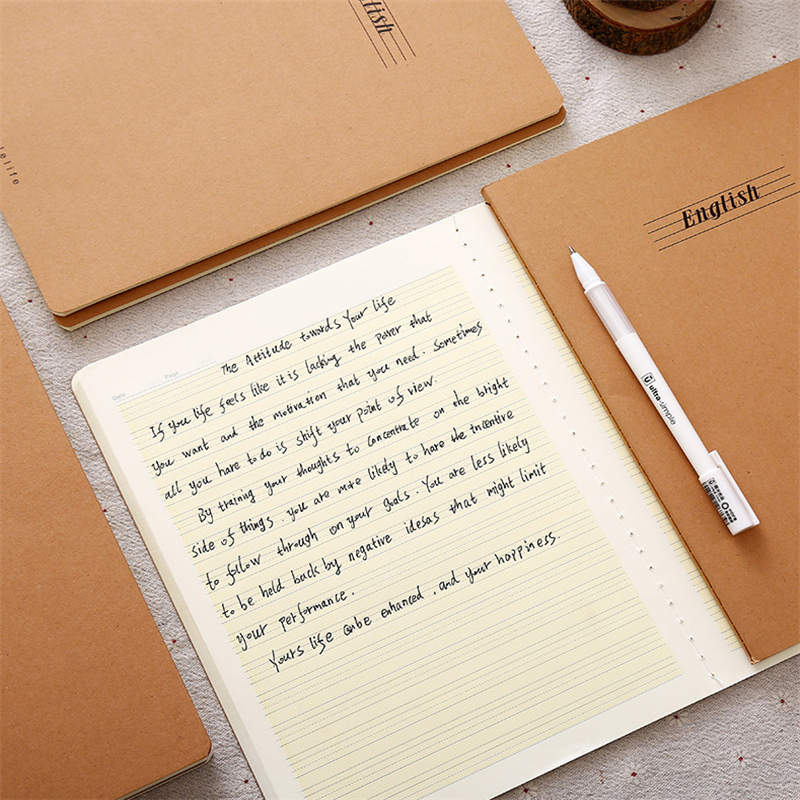 English
English
lelife
Date
Page
The Attitude towards Your life
If you life feels like it is lacking the power that
You want and the motivation that you need. Sometimes
all you have to do is shift your point of view.
By training your thoughts to concentrate on the bright
side of things. you are more likely to have the incentive
to follow through on your goals. You are less likely
to be held back by negative idesas that might limit
your performance.
Yours life canbe enhanced, and your happiness.
ultra-simple